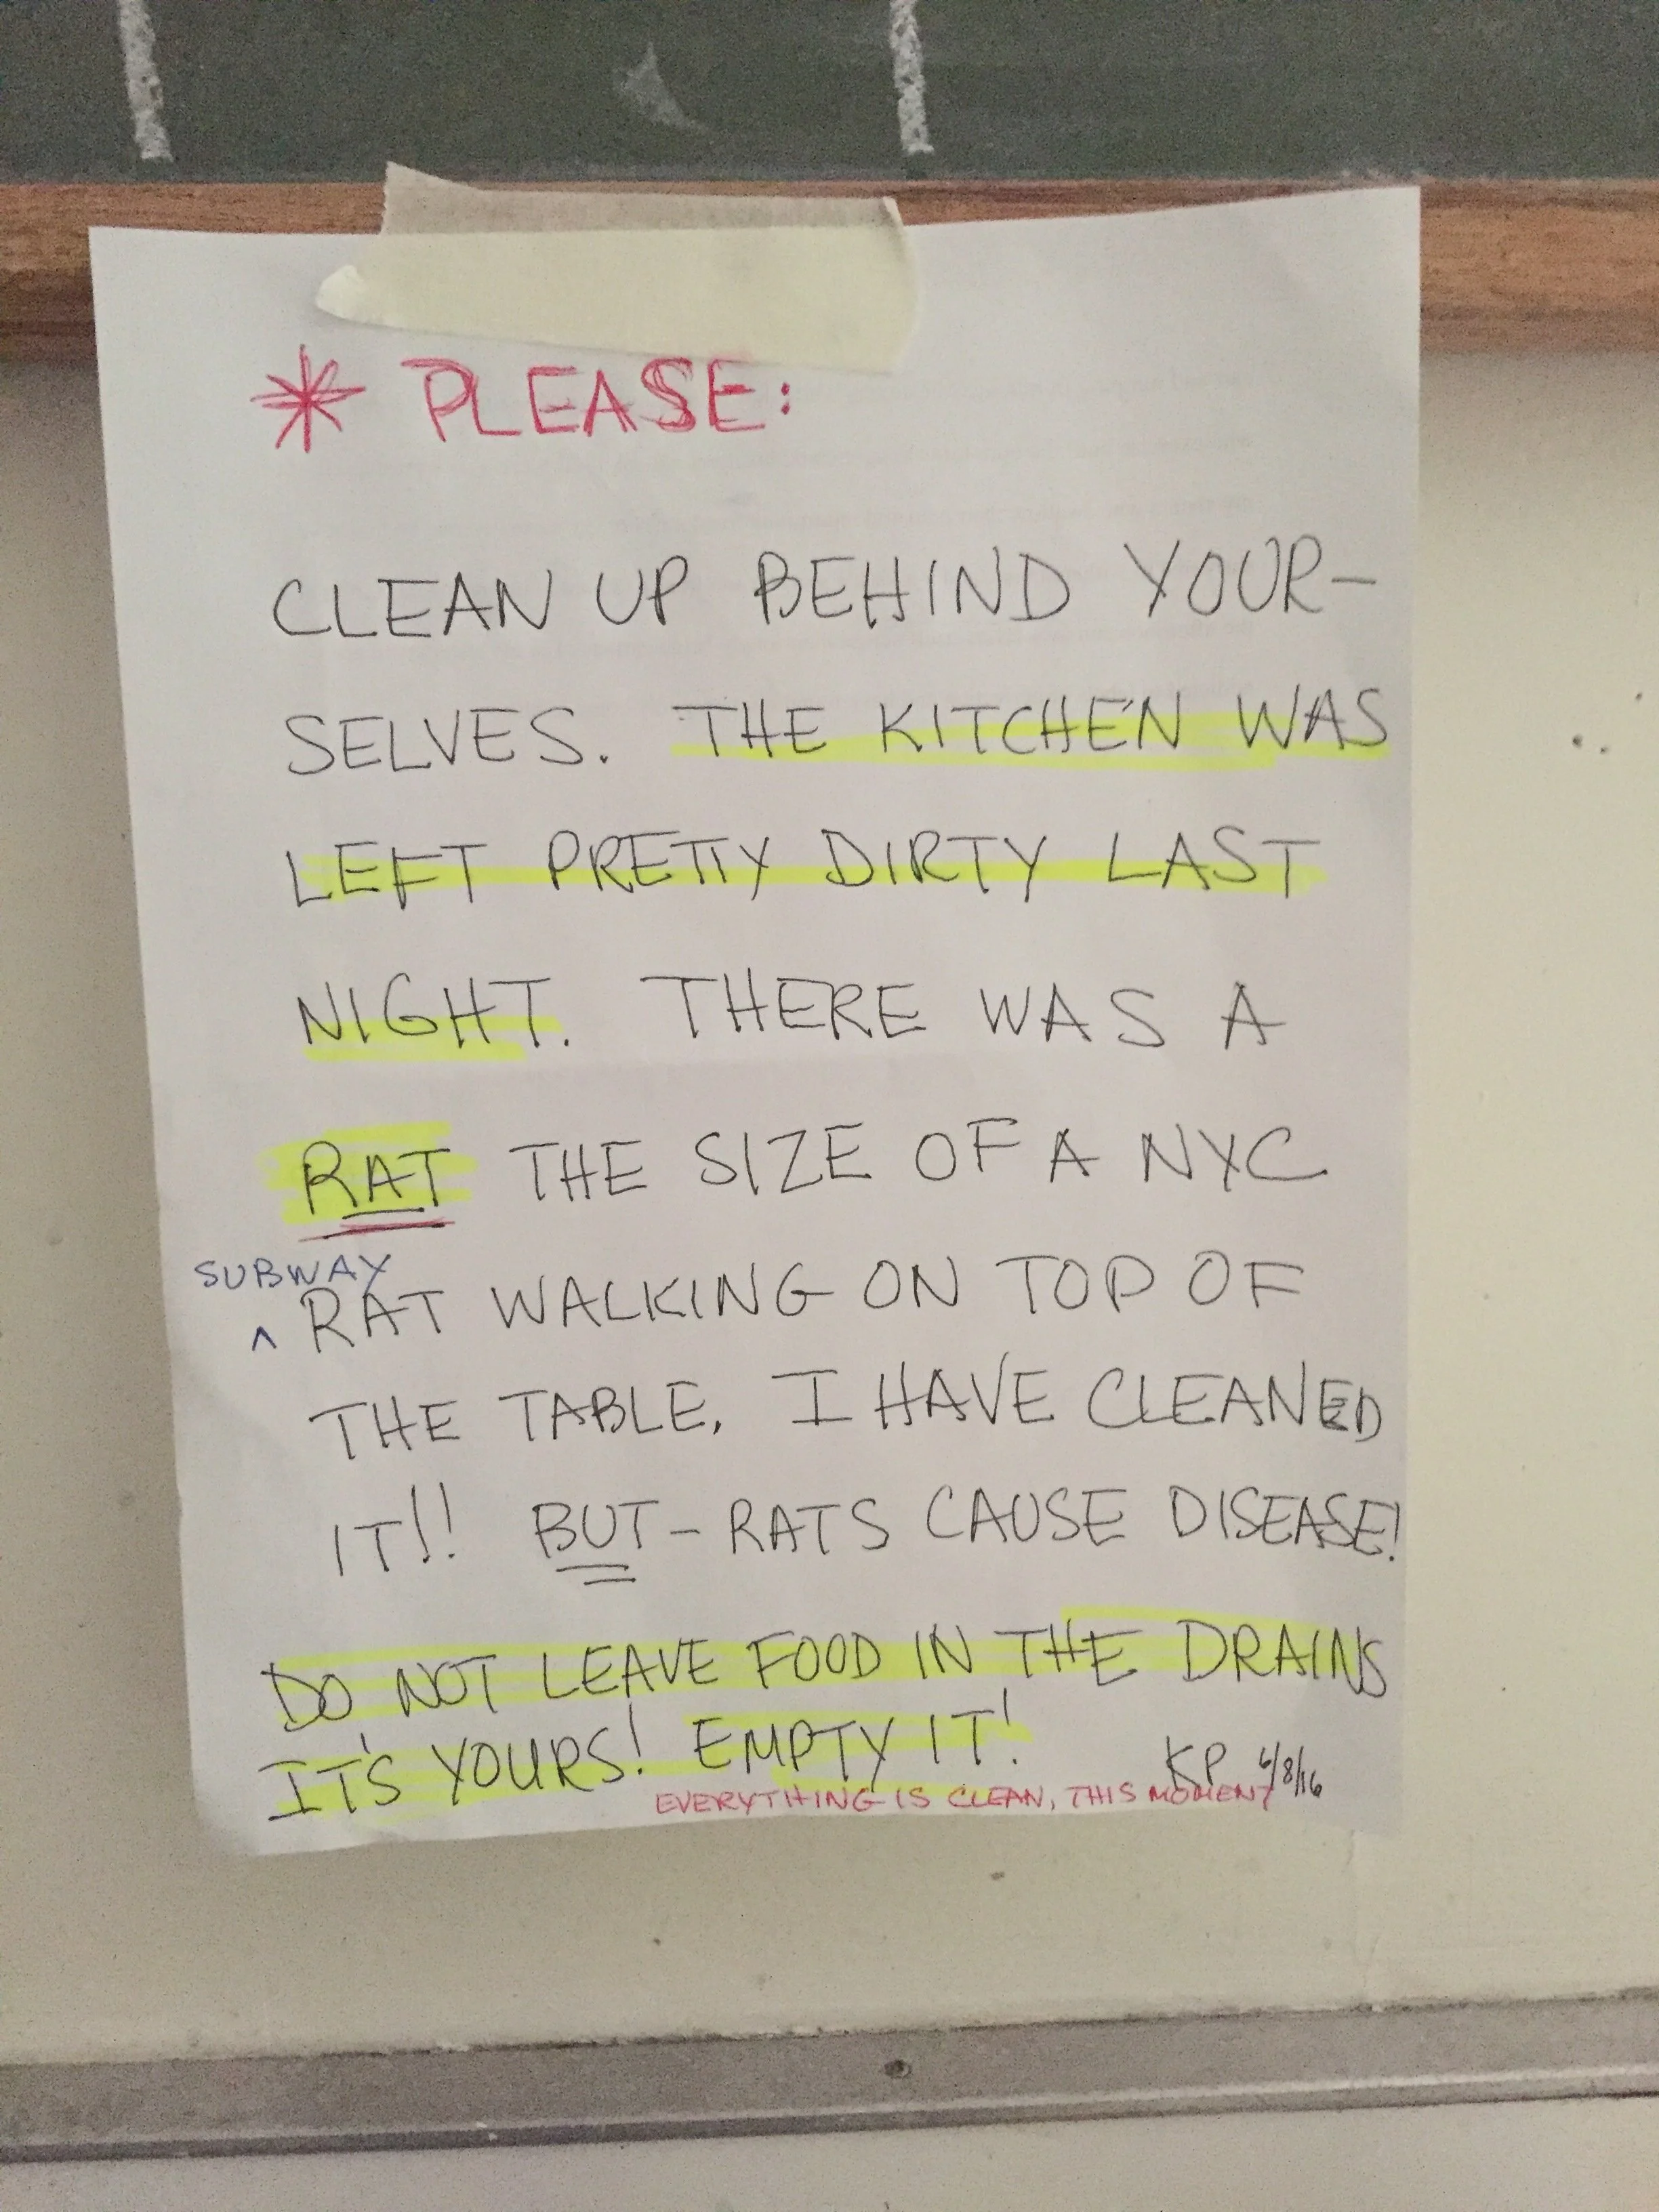 * PLEASE:
CLEAN UP BEHIND YOUR-
SELVES. THE KITCHEN WAS
LEFT PRETTY DIRTY LAST
NIGHT. THERE WAS A
RAT THE SIZE OF A NYC
SUBWAY
^ RAT WALKING ON TOP OF
THE TABLE. I HAVE CLEANED
IT!! BUT - RATS CAUSE DISEASE!
DO NOT LEAVE FOOD IN THE DRAINS
IT'S YOURS! EMPTY IT!
KP 6/8/16
EVERYTHING IS CLEAN, THIS MOMENT